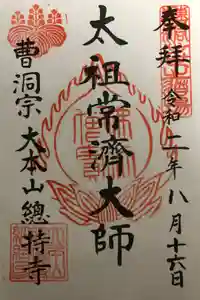 奉拜
令和二年八月十六日
太祖常濟大師
曹洞宗大本山總持寺